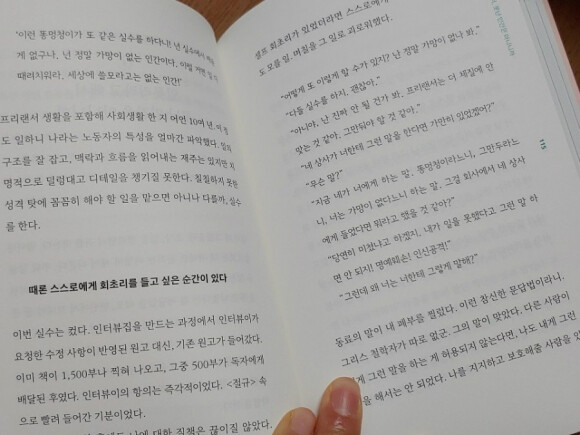 '이런 똥멍청이가 또 같은 실수를 하다니! 넌 실수에서
게 없구나. 넌 정말 가망이 없는 인간이다. 이럴
때려치워라. 세상에 쓸모라고는 없는 인간!'
프리랜서 생활을 포함해 사회생활 한 지 어언 10여 년. 이 정
도 일하니 나라는 노동자의 특성을 얼마간 파악했다. 일의
구조를 잘 잡고, 맥락과 흐름을 읽어내는 재주는 있지만 치
명적으로 덜렁대고 디테일을 챙기질 못한다. 칠칠하지 못한
성격 탓에 꼼꼼히 해야 할 일을 맡으면 아니나 다를까, 실수
를 한다.
때론 스스로에게 회초리를 들고 싶은 순간이 있다
이번 실수는 컸다. 인터뷰집을 만드는 과정에서 인터뷰이가
요청한 수정 사항이 반영된 원고 대신, 기존 원고가 들어갔다.
이미 책이 1,500부나 찍혀 나오고, 그중 500부가 독자에게
배달된 후였다. 인터뷰이의 항의는 즉각적이었다. <절규> 속
으로 빨려 들어간 기분이었다.
나에 대한 질책은 끊이질 않았다.
셀프 회초리가 있었더라면 스스로에게
도 모를 일. 며칠을 그 일로 괴로워했다.
"어떻게 또 이렇게 할 수가 있지? 난 정말 가망이 없나 봐."
"다들 실수를 하지. 괜찮아."
"아니야. 난 진짜 안 될 건가 봐. 프리랜서는 더 체질에 안
맞는 것 같아. 그만둬야 할 것 같아."
"네 상사가 너한테 그런 말을 한다면 가만히 있었겠어?"
"무슨 말?"
"지금 네가 너에게 하는 말. 똥멍청이라느니, 그만두라느
니, 너는 가망이 없다느니 하는 말. 그걸 회사에서 네 상사
에게 들었다면 뭐라고 했을 것 같아?"
"당연히 미쳤냐고 하겠지. 내가 일을 못했다고 그런 말 하
면 안 되지! 명예훼손! 인신공격!"
"그런데 왜 너는 너한테 그렇게 말해?"
동료의 말이 내 폐부를 찔렀다. 이런 참신한 문답법이라니.
그리스 철학자가 따로 없군. 그의 말이 맞았다. 다른 사람이
게 그런 말을 하는 게 허용되지 않는다면, 나도 내게 그런
을 해서는 안 되었다. 나를 지지하고 보호해줄 사람을 있
115